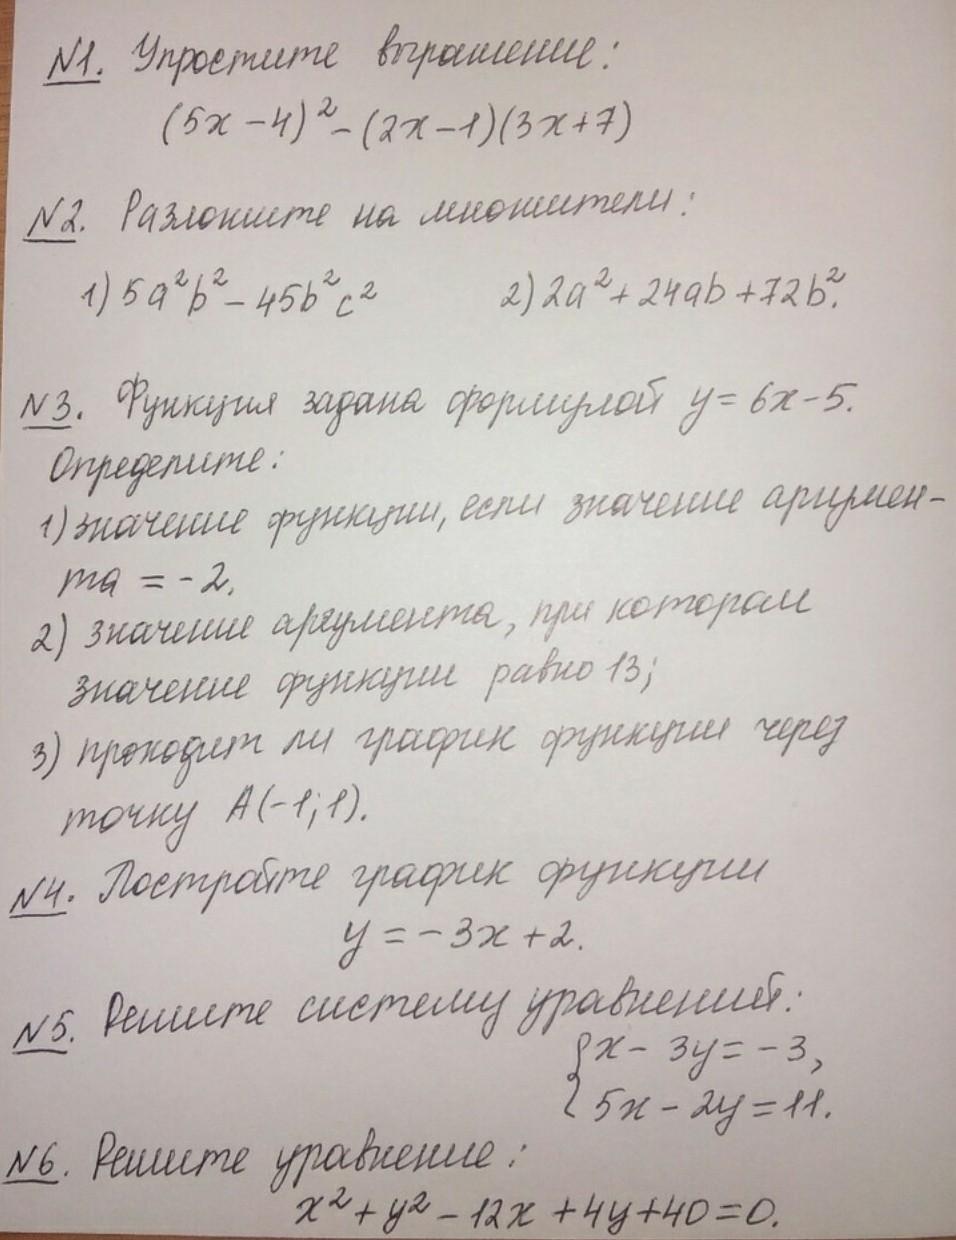 №1. Упростите выражение:
(5x-4)²-(2x-1)(3x+7)
№2. Разложите на множители:
1) 5a²b²-45b²c² 2) 2a²+24ab+72b².
№3. Функция задана формулой y=6x-5.
Определите:
1) значение функции, если значение аргумен-
та =-2.
2) значение аргумента, при котором
значение функции равно 13;
3) проходит ли график функции через
точку A(-1;1).
№4. Постройте график функции
y=-3x+2.
№5. Решите систему уравнений:
{x-3y=-3,
5x-2y=11.
№6. Решите уравнение:
x²+y²-12x+4y+40=0.